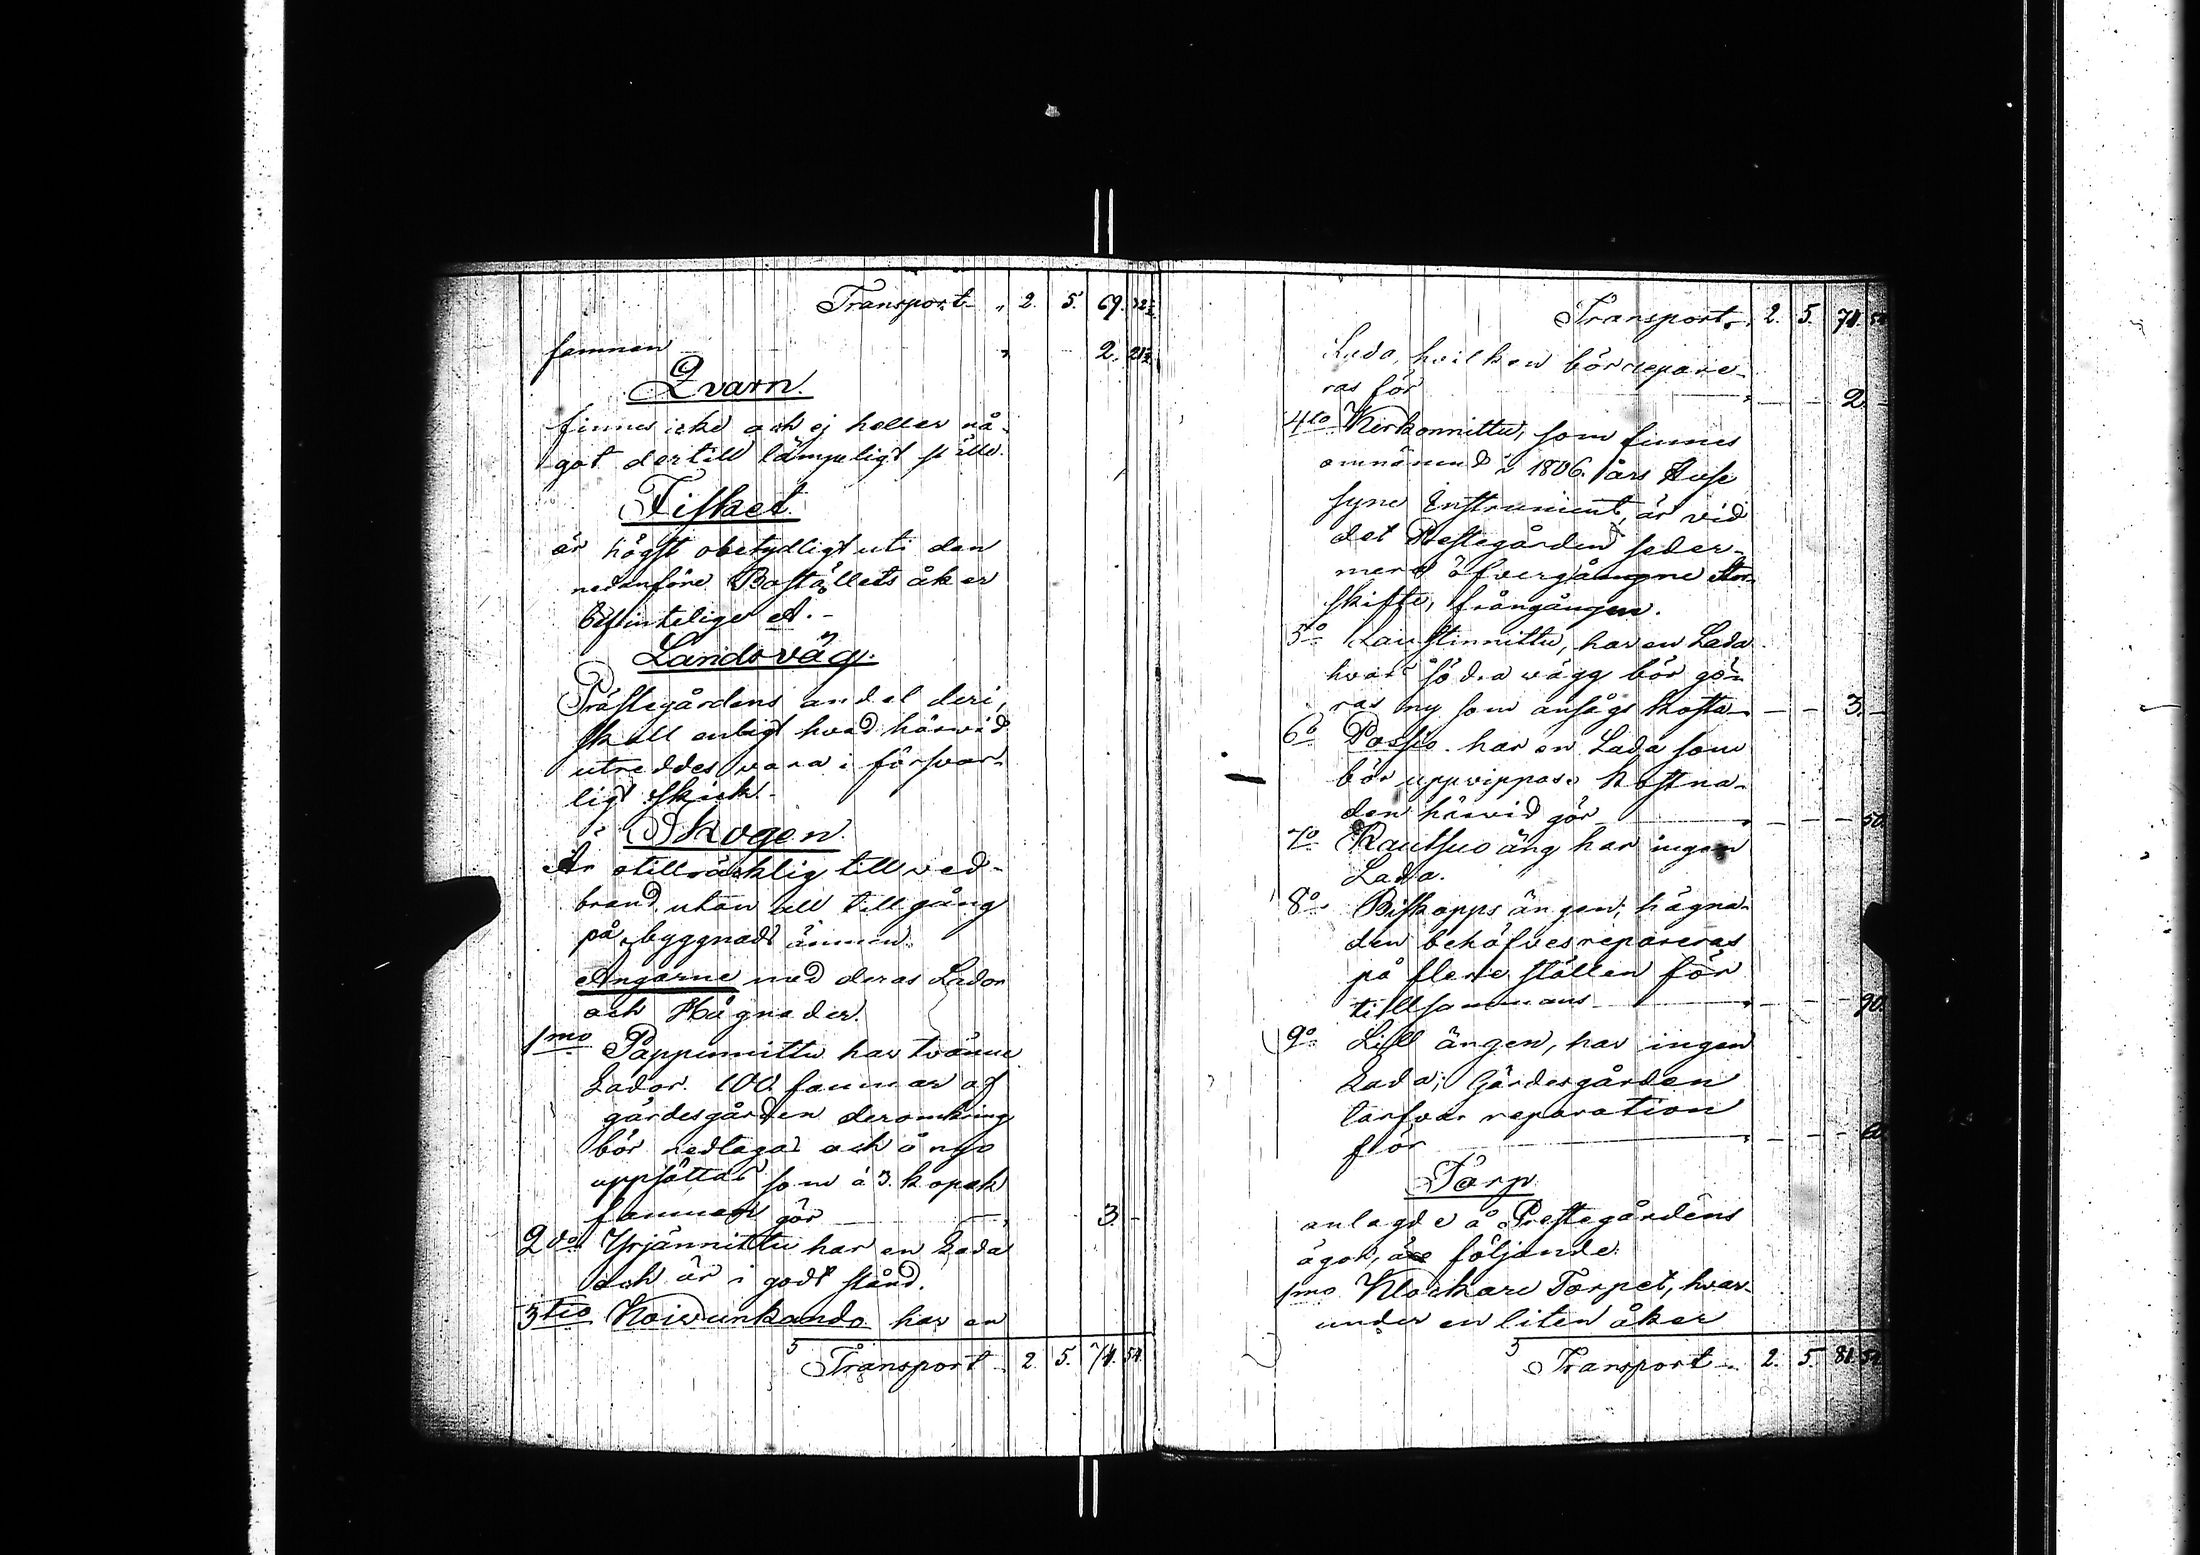 Transport „ 2. 5. 69. 32½
famnen „ 2. 21½
Qvarn.
finnes icke och ej heller nå-
got dertill lämpeligt ställe.
Fisket
är högst obetydligt uti den
nedanföre Boställets åker
befintelige Å.-
Landsväg.
Prästegårdens andel deri,
skall enligt hvad härvid
utreddes vara i försvar-
ligt skick.-
Skogen.
Är otillräcklig till ved-
brand utan all tillgång
på byggnads ämnen.
Ängarne med deras Lador
och Hägnader.
1mo Pappinnittu har tvänne
Lador. 100 famnar af
gärdesgården deromkring
bör nedtagas och å nyo
uppsättas som à 3. kopek
famnen gör 3. -
2do Yrjännittu har en Lada
och är i godt stånd.
3tio Koivunkando har en
5 Transport 2. 5. 74. 54.
Transport „ 2. 5. 74. 54
Lada, hvilken bör repare-
ras för 2. -
4to Kirkonnittu, som finnes
omnämnd i 1806. års Huse
syne Instrument, är vid
det Prestegården seder-
mera öfvergångne Stor-
skifte, frångången.
5o Laustinnittu, har en Lada
hvars södra vägg bör gö-
ras ny som ansågs kosta 3. -
6o Passio har en Lada som
bör uppvippas. Kostna-
den härvid gör 50.
7o Rautsuo äng har ingen
Lada.
8o Biskopps ängen; hägna-
den behöfves repareras
på flere ställen för
tillsammans 90.
9o Lill ängen, har ingen
Lada; Gärdesgården
tarfvar reparation
för 60
Torp
anlagde å Prestegårdens
ägor, äro följande.
1mo Klockare Torpet, hvar-
under en liten åker
5 Transport 2. 5. 81. 54